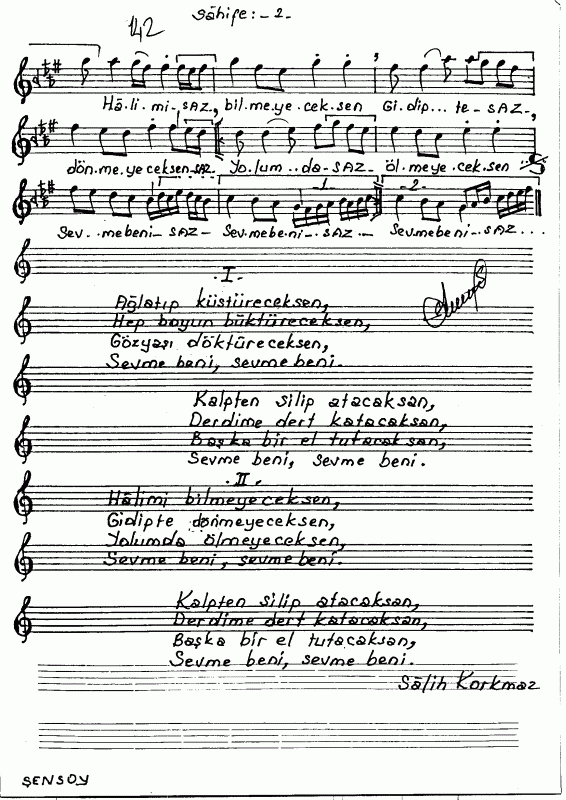 142
sâhife:-2-
Hâ.li.mi-SAZ-, bil.me.ye.cek.sen Gi.dip...te-SAZ-,
dön.me.ye ceksen-SAZ- Yo.lum..da-SAZ- öl.meye.cek.sen
-1- -2-
Sev..mebeni-SAZ- Sev.mebe.ni-.SAZ... Sev.mebeni-.SAZ...
.I.
Ağlatıp küstüreceksen,
Hep boyun büktüreceksen,
Gözyaşı döktüreceksen,
Sevme beni, sevme beni.
Kalpten silip atacaksan,
Derdime dert katacaksan,
Başka bir el tutacaksan,
Sevme beni, sevme beni.
.II.
Hâlimi bilmeyeceksen,
Gidipte dönmeyeceksen,
Yolumda ölmeyeceksen,
Sevme beni, sevme beni.
Kalpten silip atacaksan,
Derdime dert katacaksan,
Başka bir el tutacaksan,
Sevme beni, sevme beni.
Sâlih Korkmaz
ŞENSOY